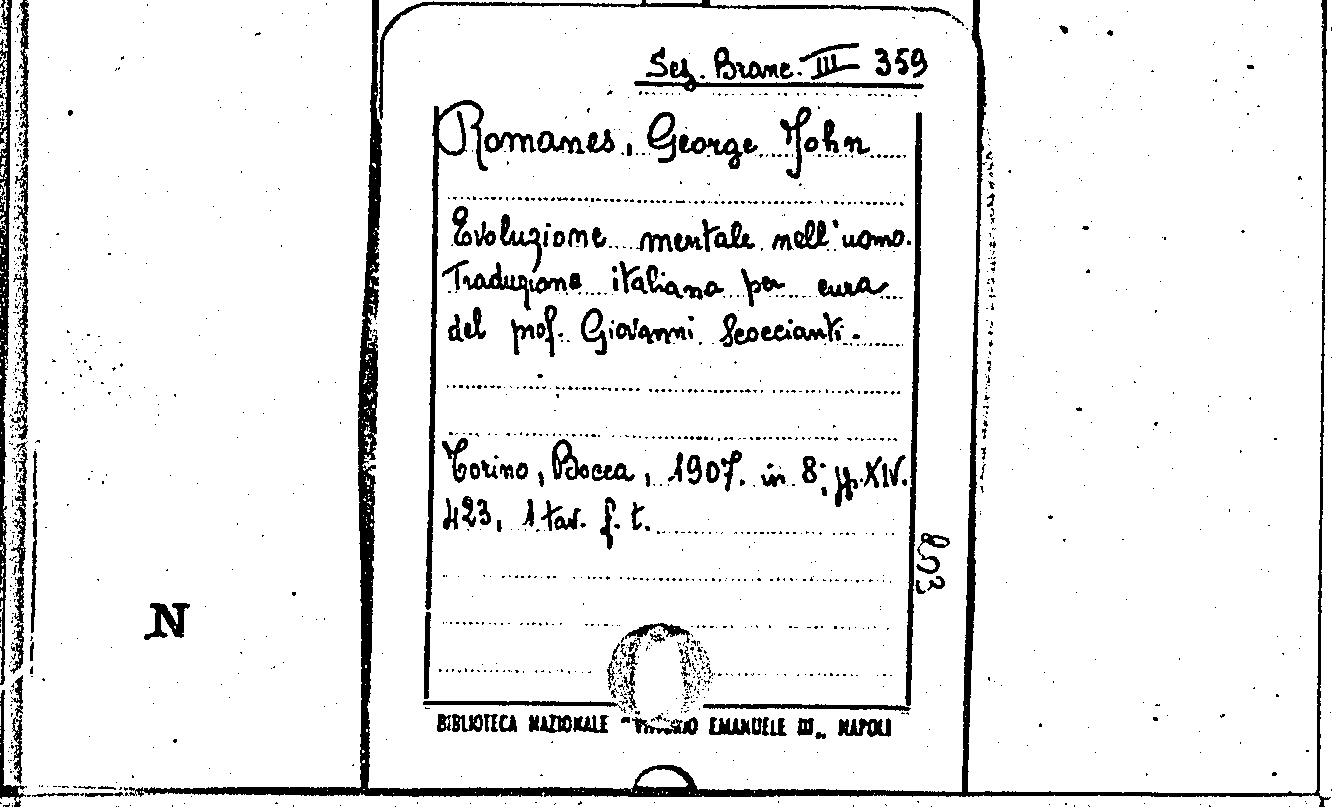 Sez. Branc. III 359
Romanes, George John
Evoluzione mentale nell'uomo.
Traduzione italiana per cura
del prof. Giovanni Scoccianti.
Torino, Bocca, 1907. in 8°, pp. XIV.
423, 1 tav. f. t.
N
BIBLIOTECA NAZIONALE "VITTORIO EMANUELE III„ NAPOLI